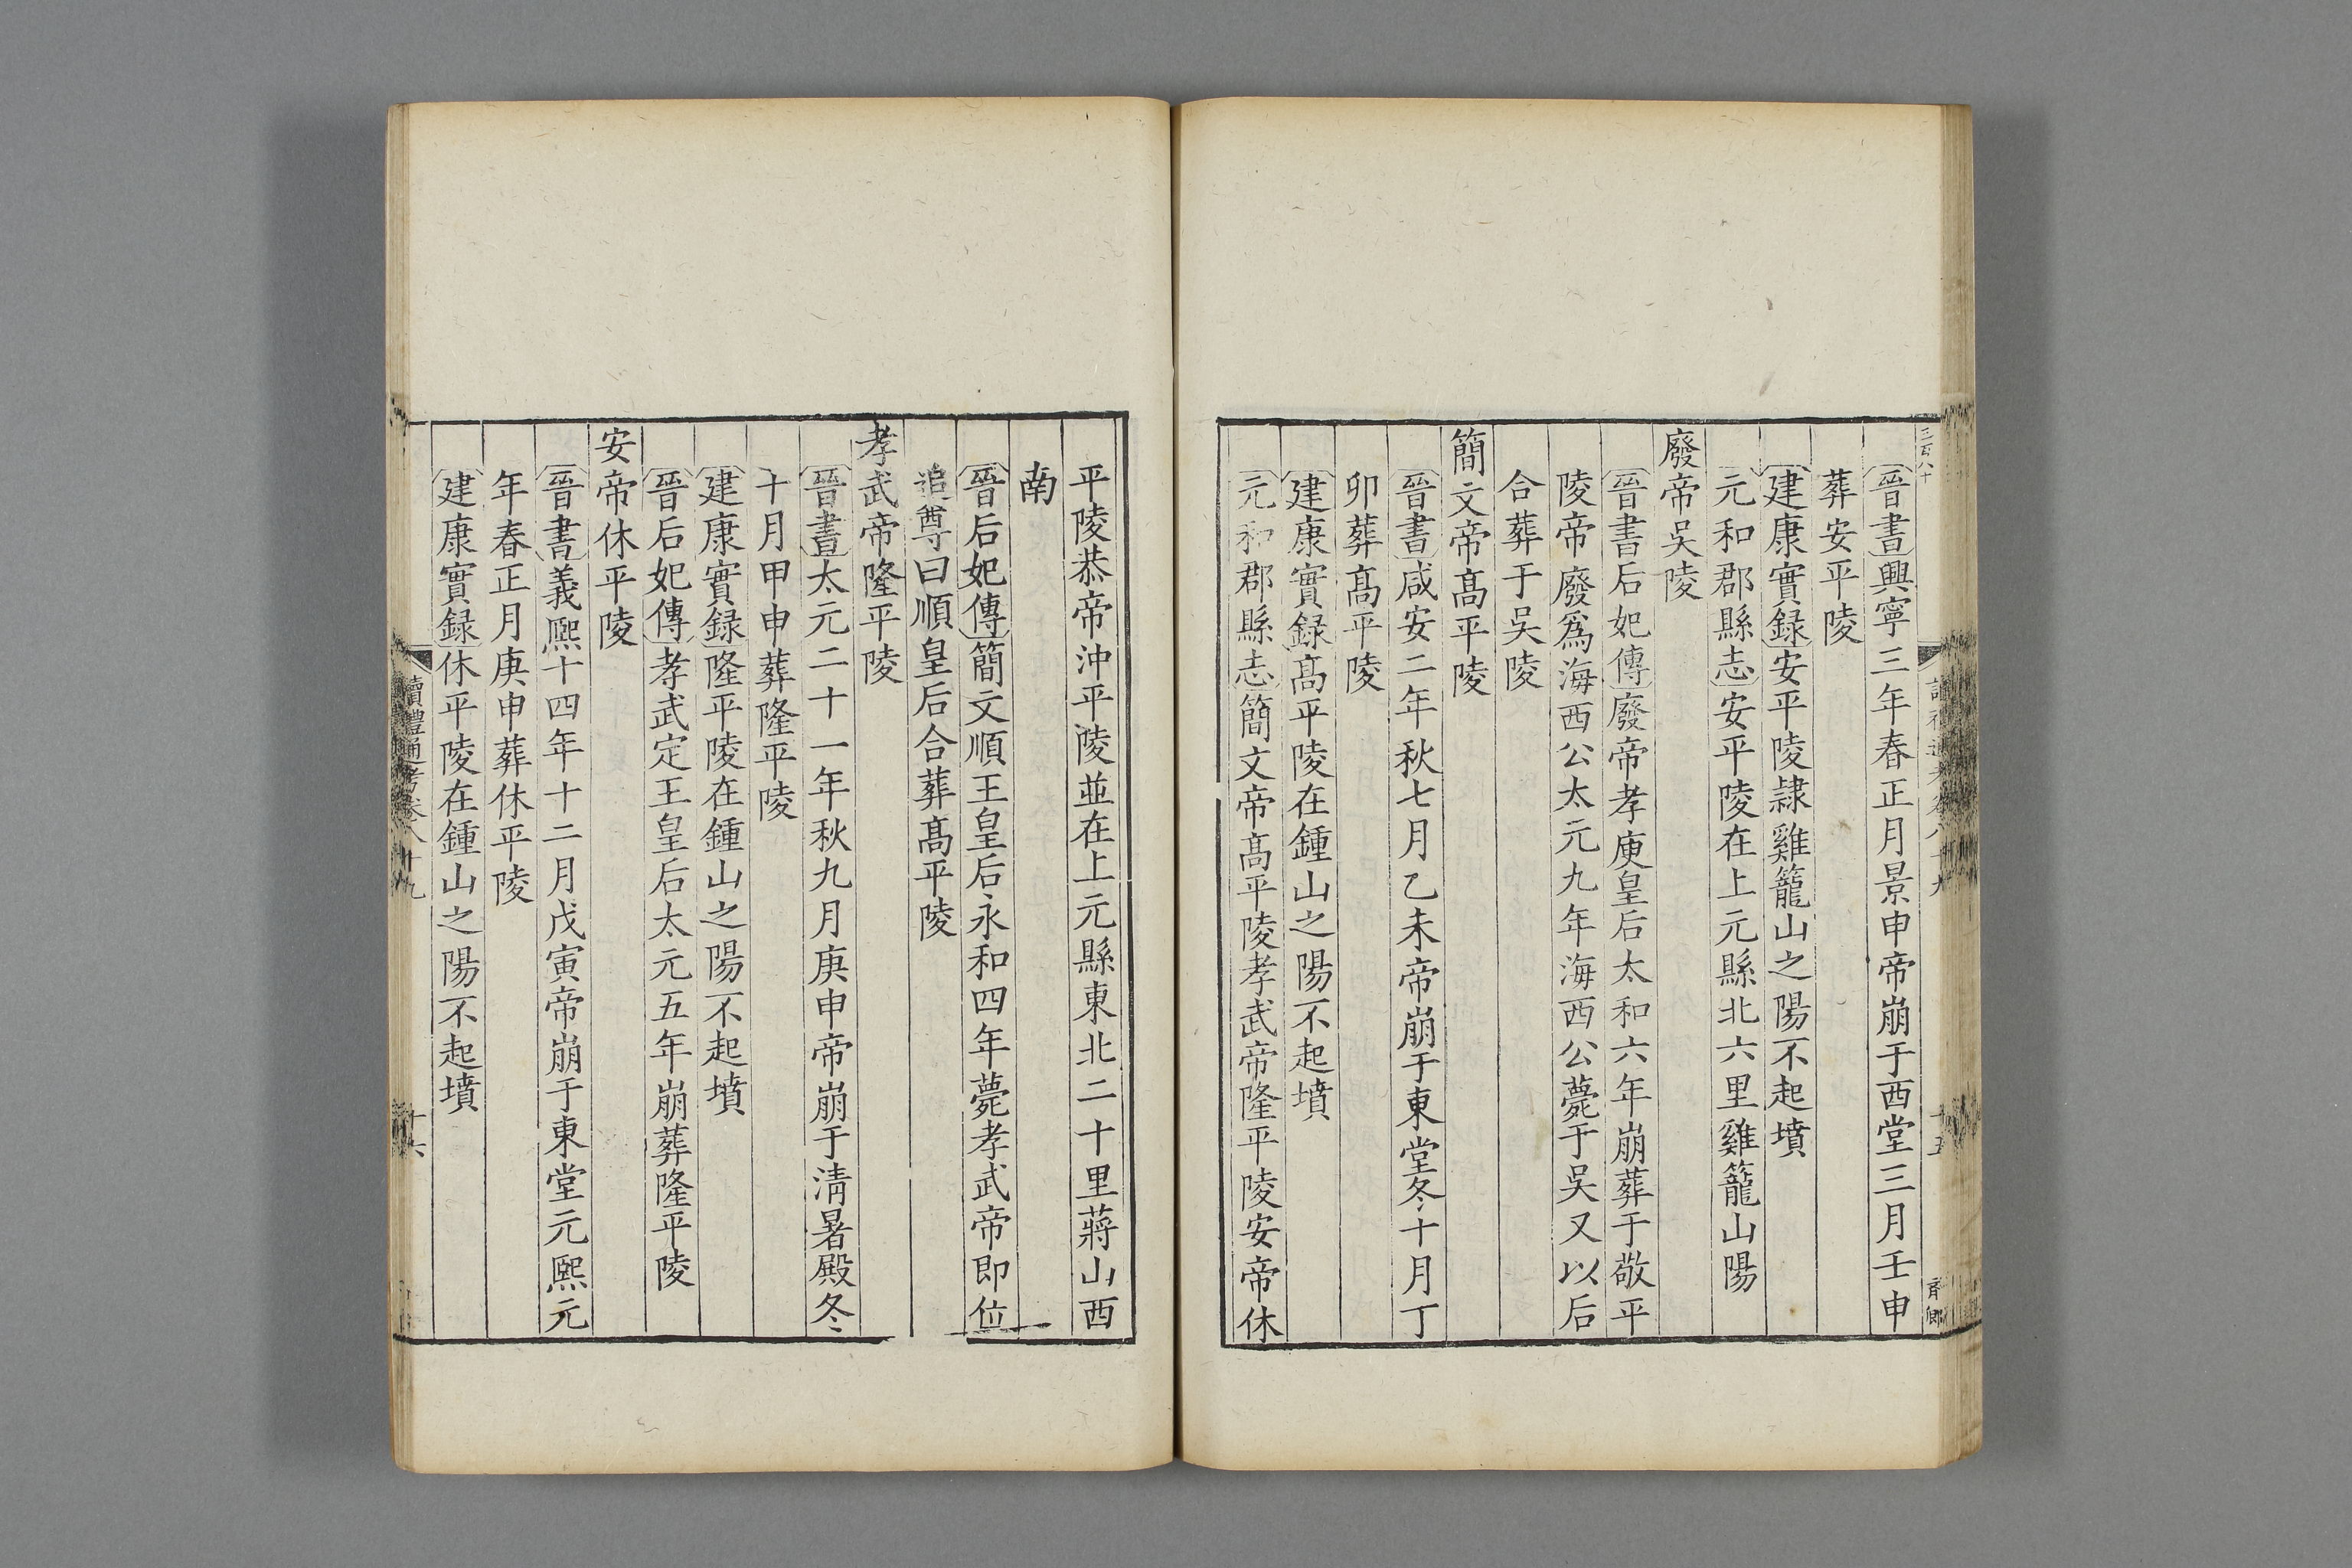 三百八十
晉書興寧三年春正月景申帝崩于西堂三月壬申
葬安平陵
建康實録安平陵隷雞籠山之陽不起墳
元和郡縣志安平陵在上元縣北六里雞籠山陽
廢帝吳陵
晉書后妃傳廢帝孝庾皇后太和六年崩葬于敬平
陵帝廢爲海西公太元九年海西公薨于吳又以后
合葬于吳陵
簡文帝髙平陵
晉書咸安二年秋七月乙未帝崩于東堂冬十月丁
卯葬髙平陵
建康實録髙平陵在鍾山之陽不起墳
元和郡縣志簡文帝髙平陵孝武帝隆平陵安帝休
平陵恭帝沖平陵並在上元縣東北二十里蔣山西
南
晉后妃傳簡文順王皇后永和四年薨孝武帝即位
追尊曰順皇后合葬髙平陵
孝武帝隆平陵
晉書太元二十一年秋九月庚申帝崩于淸暑殿冬
十月甲申葬隆平陵
建康實録隆平陵在鍾山之陽不起墳
晉后妃傳孝武定王皇后太元五年崩葬隆平陵
安帝休平陵
晉書義熙十四年十二月戊寅帝崩于東堂元熙元
年春正月庚申葬休平陵
建康實録休平陵在鍾山之陽不起墳
讀禮通考卷八十九
十六